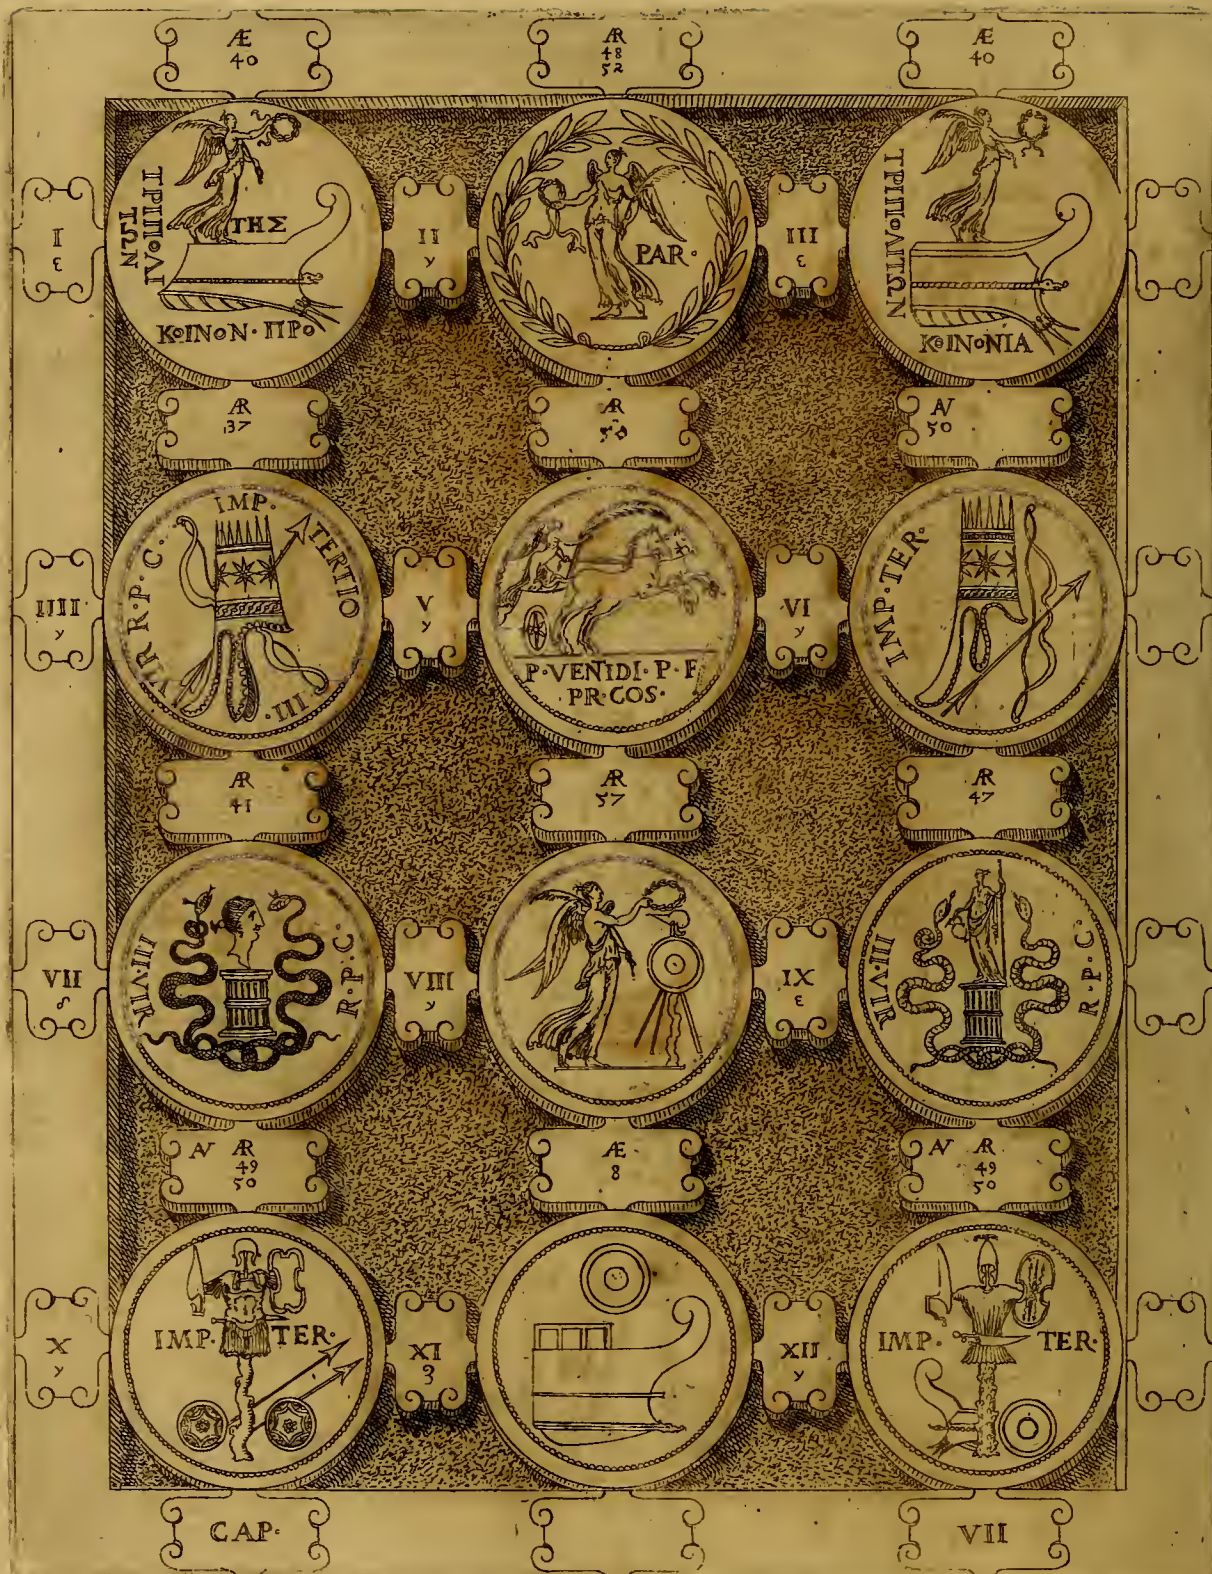 Æ
40
ÆR
48
52
Æ
40
I
ε
ΤΡΙΠΟΛΙ
ΤΩΝ
ΤΗΣ
ΚΟΙΝΟΝ·ΠΡΟ
II
γ
PAR·
III
ε
ΤΡΙΠΟΛΙΤΩΝ
ΚΟΙΝΟΝΙΑ
ÆR
37
ÆR
50
AV
50
IIII
γ
III·VIR·R·P·C·
IMP·TERTIO
V
γ
P·VENIDI·P·F
PR·COS·
VI
γ
IMP·TER·
ÆR
41
ÆR
57
ÆR
47
VII
III·VIR
R·P·C·
VIII
γ
IX
ε
III·VIR
R·P·C·
AV ÆR
49
50
Æ
8
AV ÆR
49
50
X
γ
IMP· TER·
XI
3
XII
γ
IMP· TER·
CAP·
VII